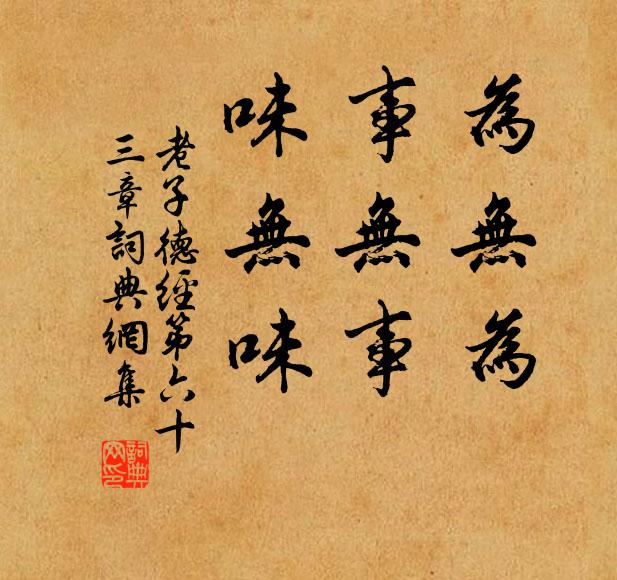 為無為
事無事
味無味
老子德經第六十
三章詞典網集
詞典
网印